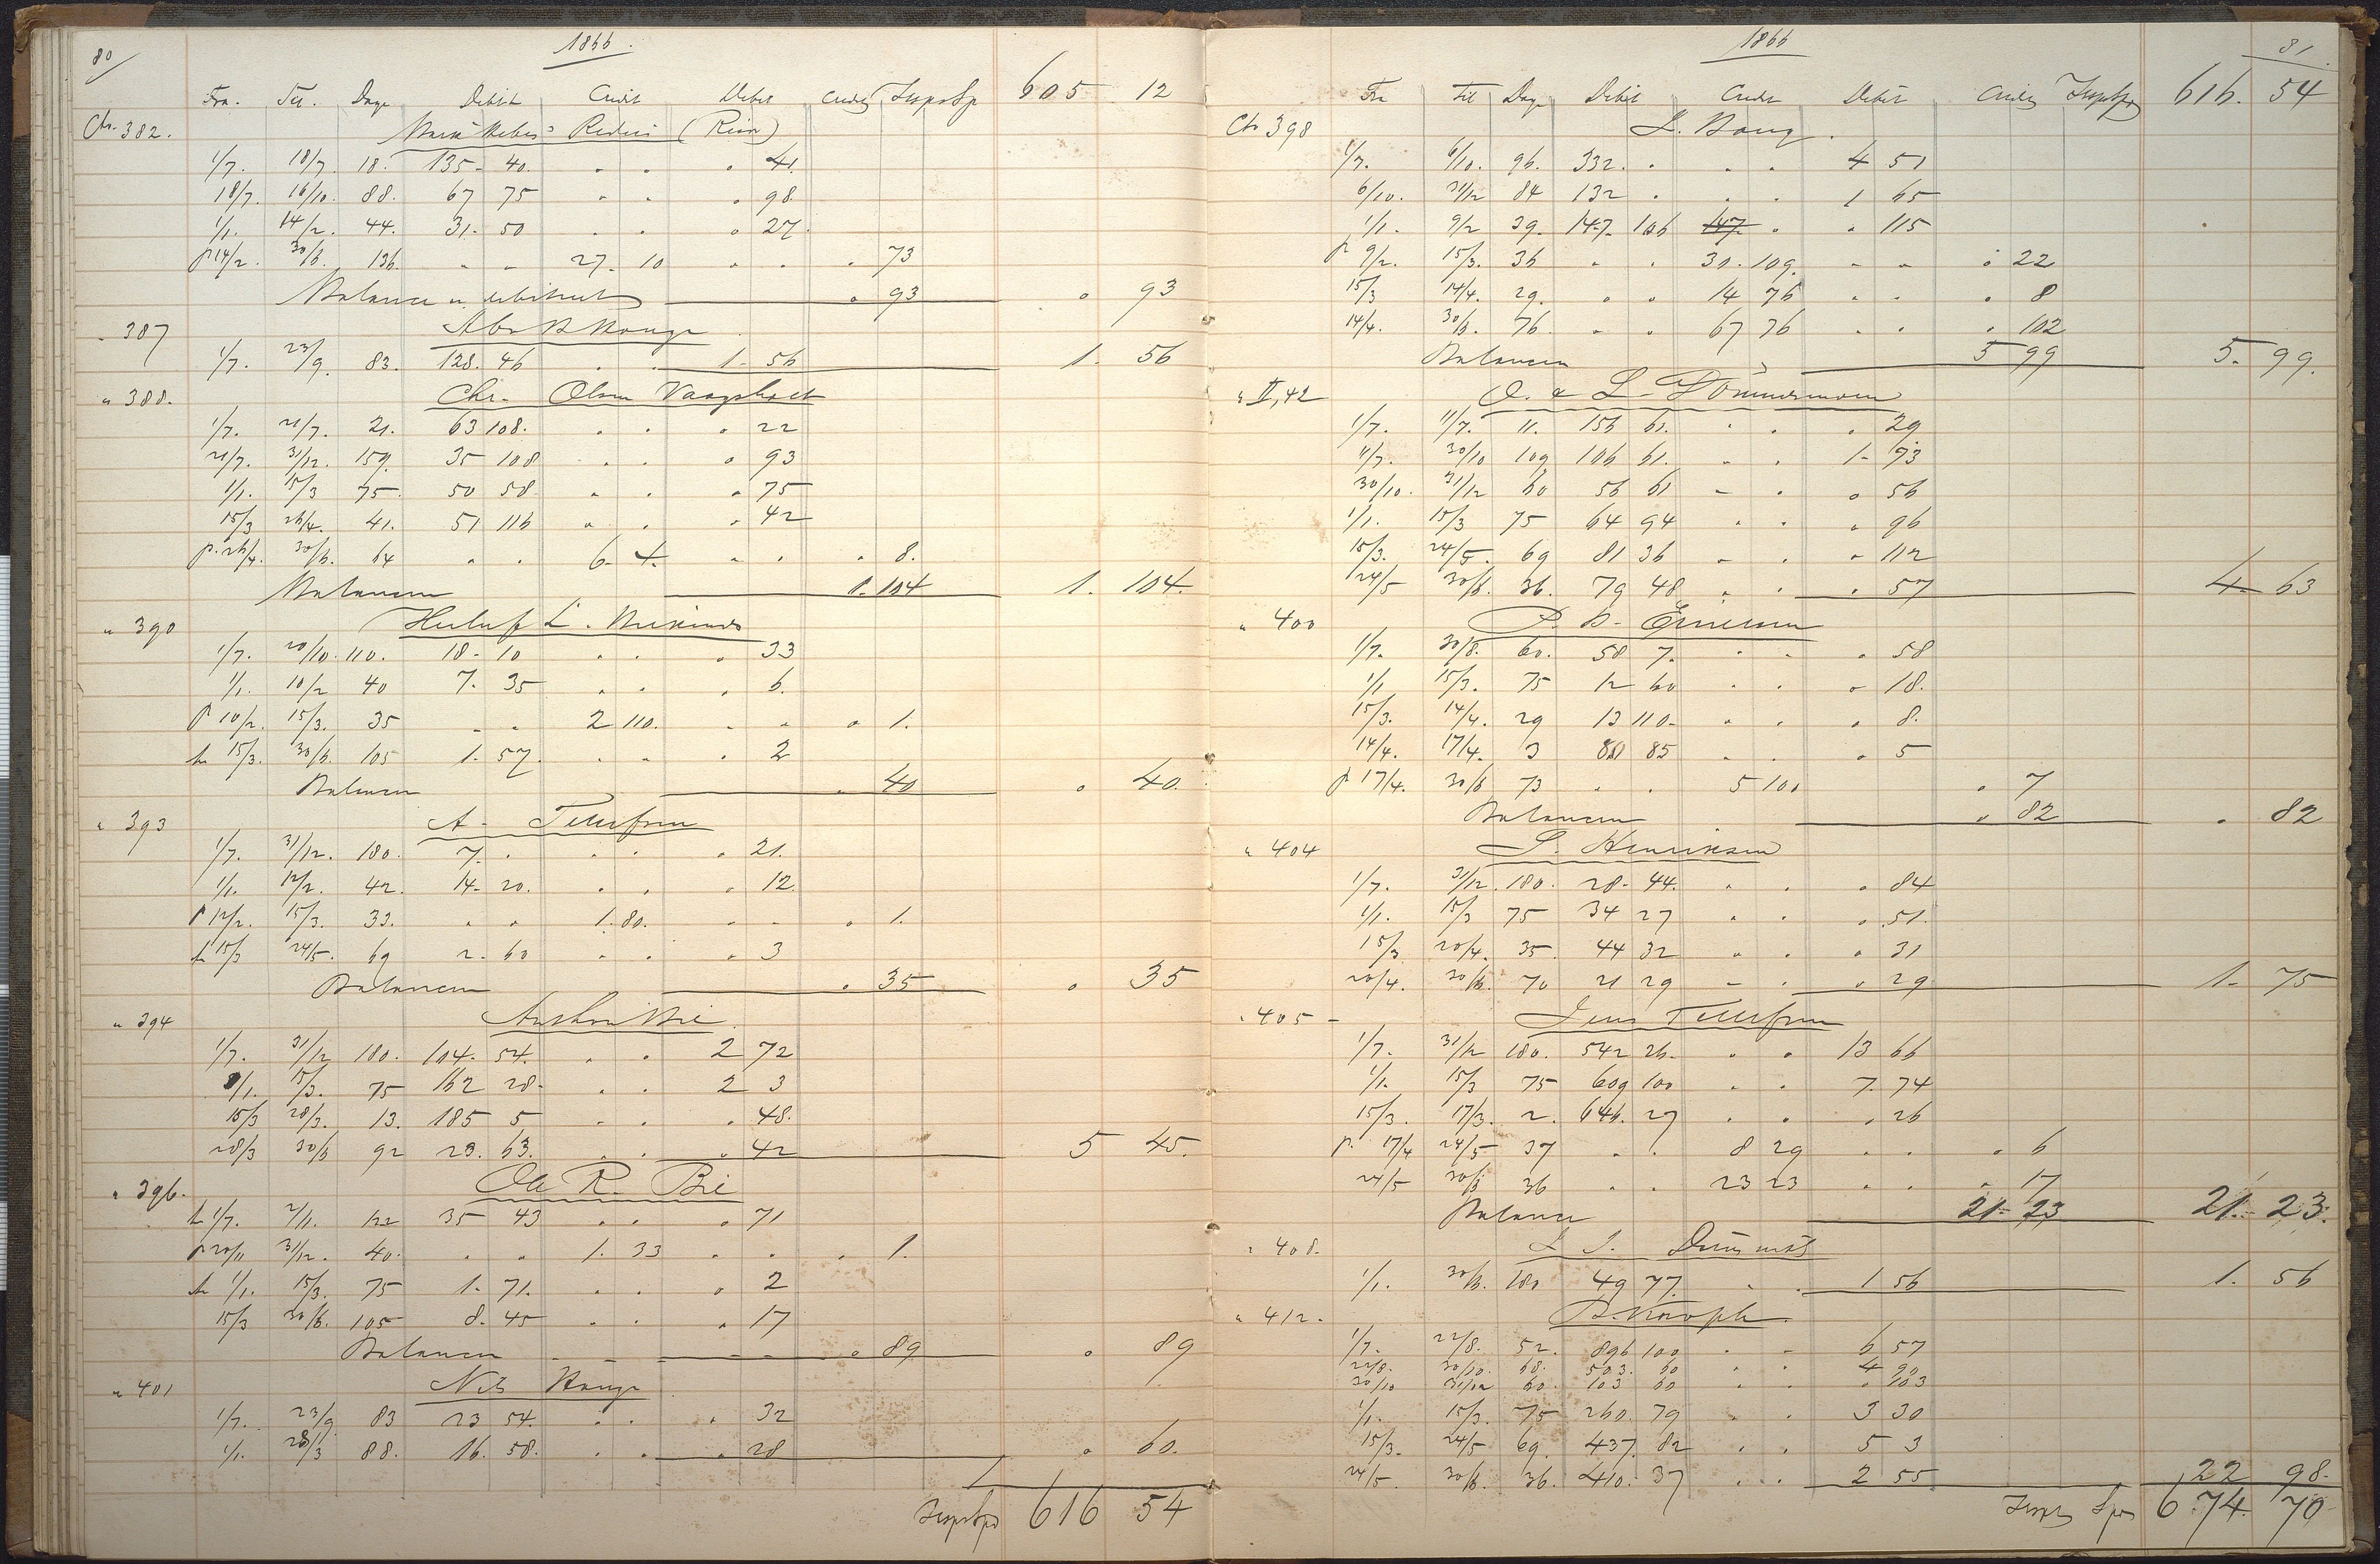 80
1866.
Fra. Til. Dage Debit Credit Debet Credit Transp Sp 605 12
Cto. 382. (Riisr)
1/7. 18/7. 18. 135 - 40. " " " 41.
18/7. 16/10. 88. 67 75 " " " 98.
1/1. 14/2. 44. 31 - 50 " " " 27.
p 14/2. 30/6. 136. " " 27. 10 " " " 73
Balance " 93 " 93
" 387 Hauge
1/7. 23/9. 83. 128. 46 " " 1 - 56 1. 56
" 388. Chr. Olsen Vaagsholt
1/7. 21/7. 21. 63 108. " " " 22
21/7. 31/12. 159. 35 108 " " " 93
1/1. 15/3 75. 50 58. " " " 75
15/3 26/4. 41. 51 116 " " " 42
p. 26/4. 30/6. 64 " " 6 - 4. " " " 8.
Balancen 1. 104 1. 104.
" 390
1/7. 20/10. 110. 18 - 10 " " " 33
1/1. 10/2 40 7. 35 " " " 6.
p 10/2. 15/3. 35 " " 2 110. " " " 1.
15/3. 30/6. 105 1. 57. " " " 2
Balancen " 40 " 40.
" 393 A. Tellefsen
1/7. 31/12. 180. 7. " " " " 21.
1/1. 12/2. 42. 14 - 20. " " " 12.
p 12/2. 15/3. 33. " " 1. 80. " " " 1.
15/3 24/5. 69 2. 60 " " " 3
Balancen " 35 " 35
" 394
1/7. 31/12 180. 104. 54. " " 2 72
1/1. 15/3. 75 162 28 - " " 2 3
15/3 28/3. 13. 185 5 " " " 48.
28/3 30/6 92 23. 63. " " " 42 5 45.
" 396. Ole R. Bie
1/7. 2/11. 122 35 43 " " " 71
p 20/11 31/12. 40. " " 1. 33 " " " 1.
1/1. 15/3. 75 1. 71. " " " 2
15/3 30/6. 105 8. 45 " " " 17
Balancen " 89 " 89
" 401 Nils Hauge
1/7. 23/9. 83 23 54. " " " 32
1/1. 28/3 88. 16. 58. " " " 28 " 60.
Transp Spd 616 54
1866 81.
Fra Til Dage Debit Credit Debit Credit Transp Spd 616. 54
Cto 398 L. Houg.
1/7. 6/10. 96. 332. " " " 4 51
6/10. 31/12 84 132 " " " 1 65
1/1. 9/2 39. 147. 106 147. " " 115
p 9/2. 15/3. 36 " " 30. 109. " " " 22
15/3 14/4. 29. " " 14 76 " " " 8
14/4. 30/6. 76. " " 67 76 " " " 102
Balancen 5 99 5. 99.
" II, 42 O. & L.
1/7. 11/7. 11. 156 61. " " " 29
11/7. 30/10 109 106 61. " " 1 - 93
30/10. 31/12 60 56 61 " " " 56
1/1. 15/3 75 64 94 " " " 96
15/3. 24/5. 69 81 36 " " " 112
24/5 30/6. 36. 79 48 " " " 57 4 - 63
" 400
1/7. 30/8. 60. 58 7. " " " 58
1/1 15/3. 75 12 60 " " " 18.
15/3. 14/4. 29 13 110. " " " 8.
14/4. 17/4. 3 85 " " " 5
p 17/4. 30/6 73 " " 5 100 " 7
Balancen " 82 " 82
" 404 Henriksen
1/7. 31/12. 180. 28. 44. " " " 84
1/1. 15/3 75 34 27 " " " 51.
15/3 20/4. 35. 44 32 " " " 31
20/4. 30/6. 70 21 29 " " " 29 1 - 75
" 405 - Jens Tellefsen
1/7. 31/12 180. 542 26. " " 13 66
1/1. 15/3 75 609 100 " " 7. 74
15/3. 17/3. 2. 646. 27 " " " 26
p. 17/4 24/5 37 " " 8 29 " " " 6
24/5 30/6 36 " " 23 23 " " " 17
Balance 21 - 23 21. 23.
" 408.
1/1. 30/6. 180 49 77. " " 1 56 1. 56
" 412.
1/7. 22/8. 52. 896 100 " " 6 57
22/8. 30/10. 68. 503. 60 " " 4 90
30/10 31/12 60. 103 60 " " " 103
1/1. 15/3. 75 260. 79 " " 3 30
15/3. 24/5 69. 437. 82 " " 5 3
24/5. 30/6. 36. 410. 37 " " 2 55 22 98.
Transp Spd 674. 70